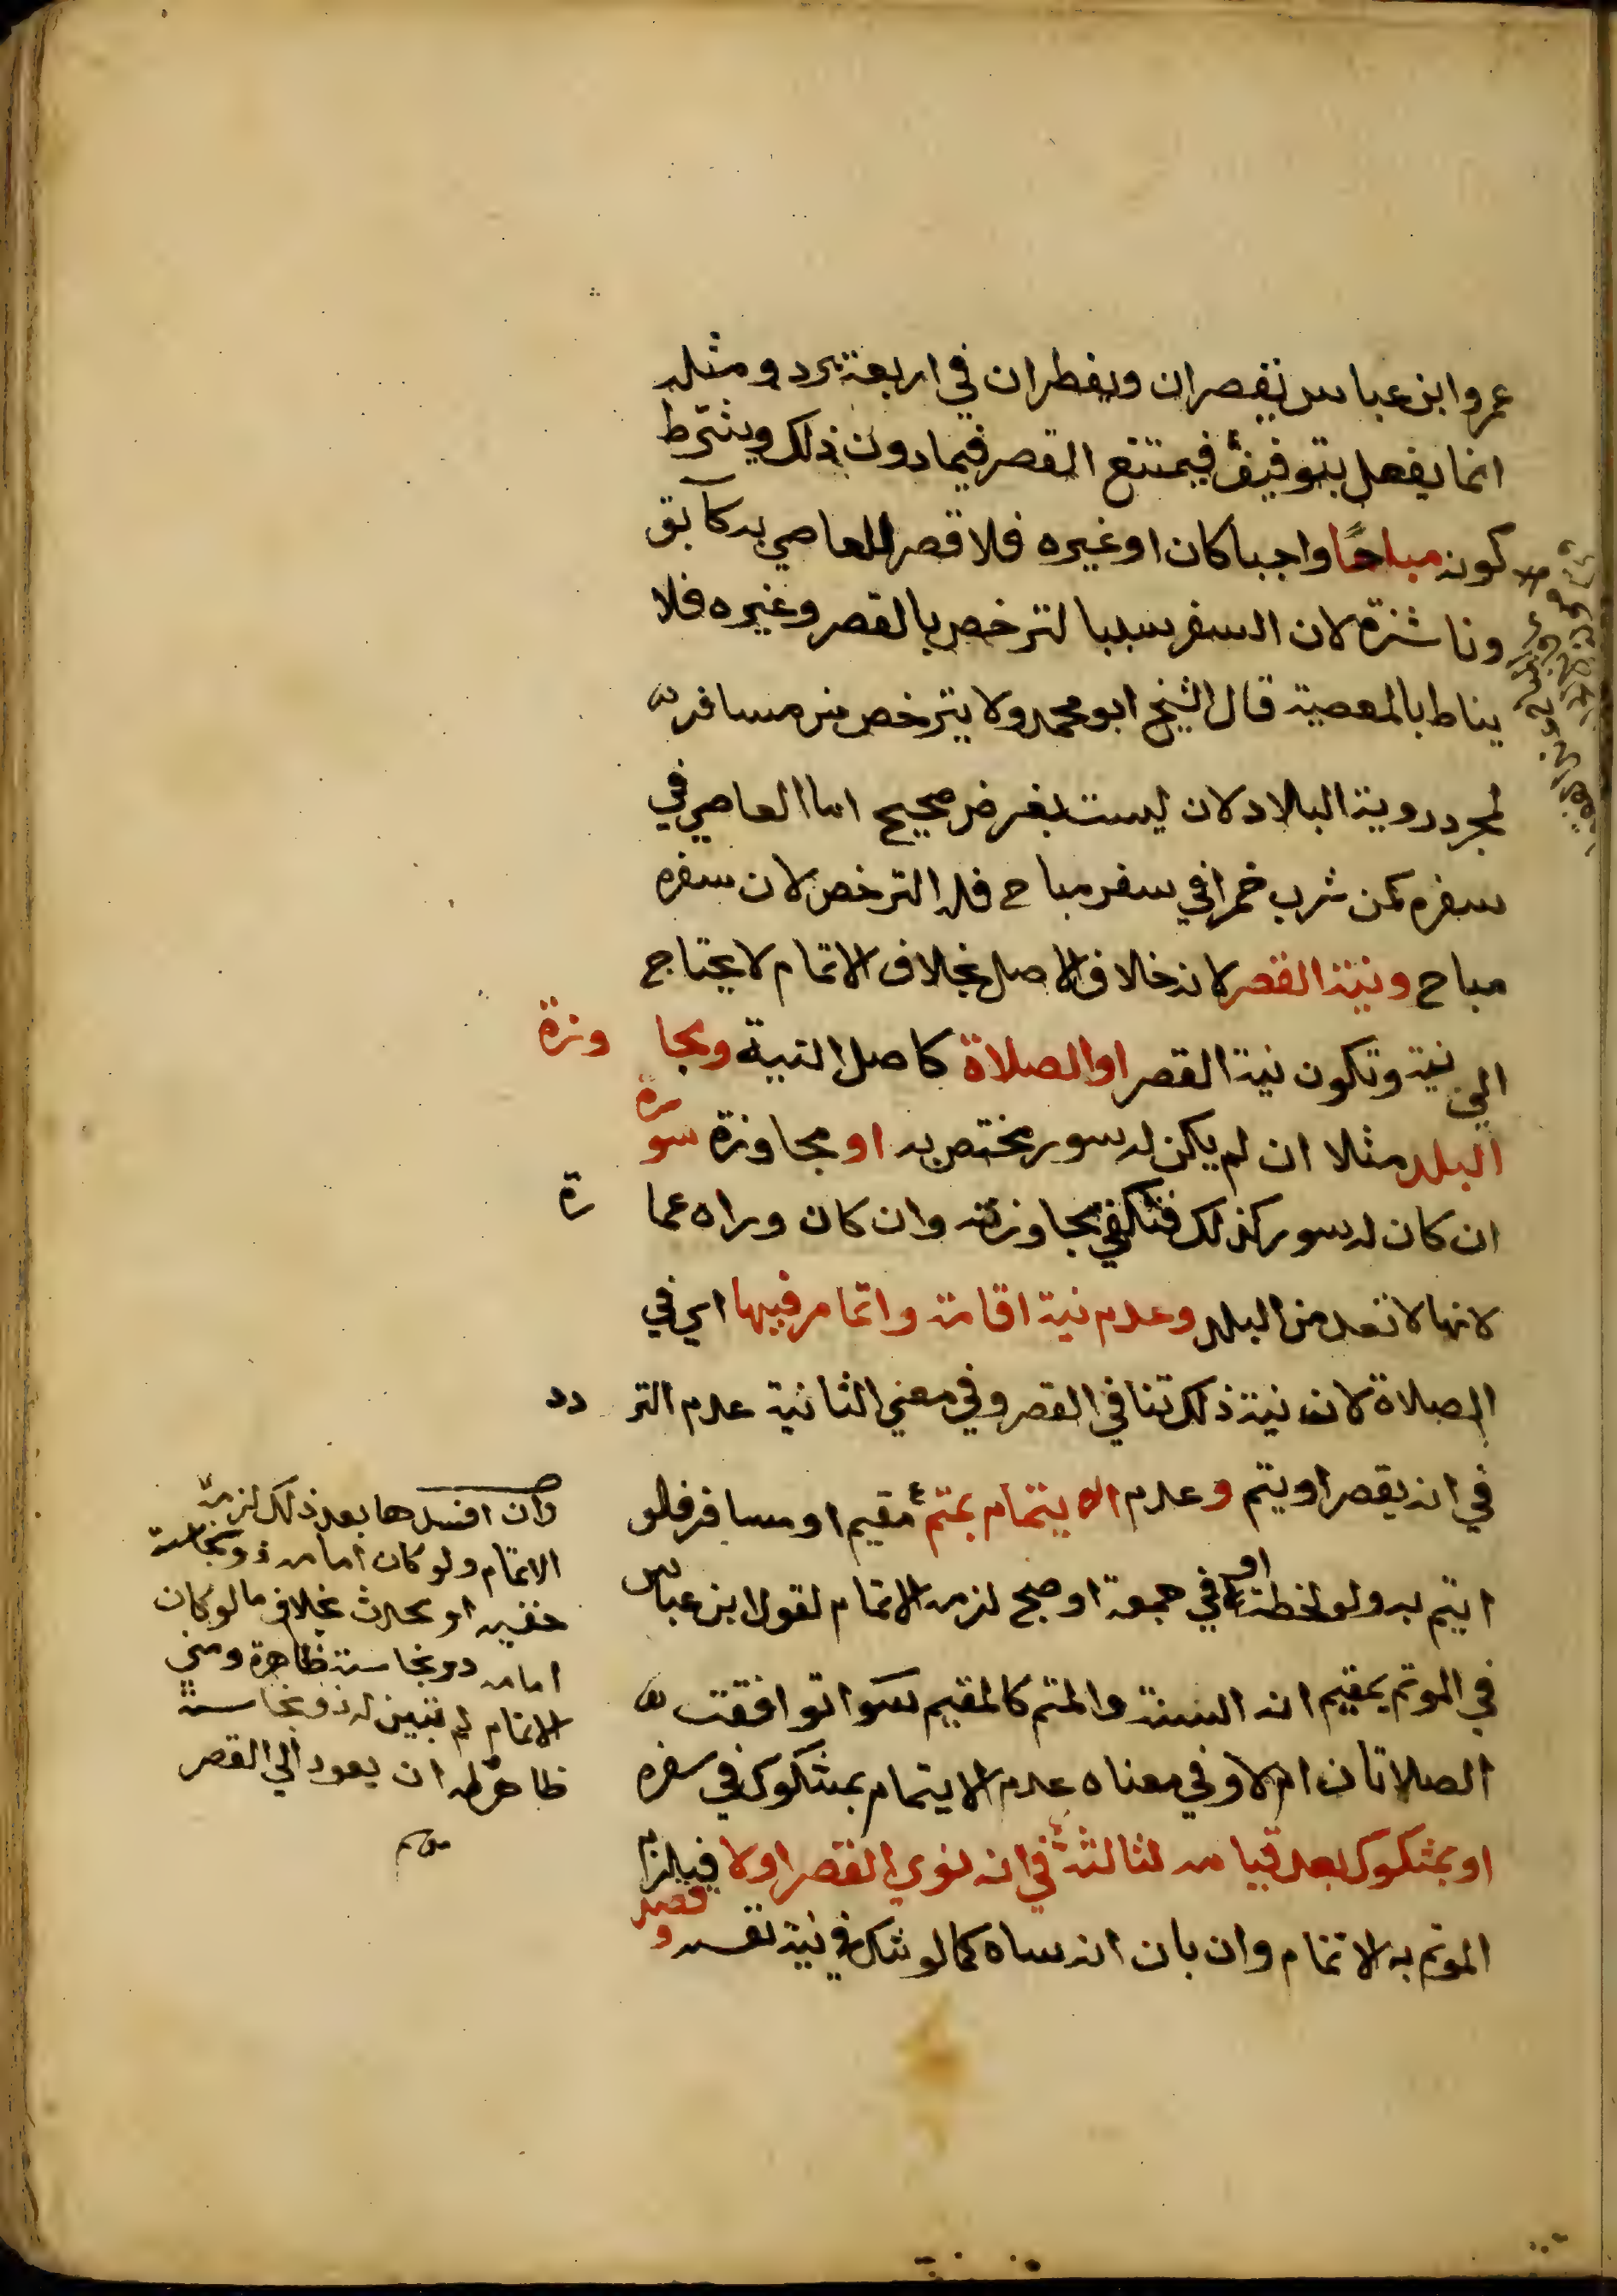 عمر وابن عباس يقصران ويفطران في اربعة برد ومثله
انما يفعل بتوقيف فيمتنع القصر فيما دون ذلك ويشترط
كونه مباحا واجبا كان او غيره فلا قصر للعاصي به كآبق
وناشزة لان السفر سببا لترخص بالقصر وغيره فلا
يناط بالمعصية قال الشيخ ابو محمد ولا يترخص من مسافر
لمجرد روية البلاد لان ليست بغرض صحيح اما العاصي في
سفره كمن شرب خمرا في سفر مباح فله الترخص لان سفره
مباح ونية القصر لانه خلاف الاصل بخلاف الاتمام لا يحتاج
الي نية وتكون نية القصر اول الصلاة كاصل النية ومجاوزة
البلد مثلا ان لم يكن له سور مختص به او مجاوزة سوره
ان كان له سور كذلك فتكفي مجاوزته وان كان وراه عمارة
لانها لا تعد من البلد وعدم نية اقامة واتمام فيها اي في
الصلاة لان نية ذلك تنافي القصر وفي معني الثانية عدم التردد
في انه يقصر او يتم وعدم الايتمام بمتم مقيم او مسافر فلو
ايتم به ولو لحظة او في جمعة او صبح لزمه الاتمام لقول ابن عباس
في الموتم بمقيم انه السنة والمتم كالمقيم سوا توافقت
الصلاتان ام لا وفي معناه عدم الايتمام بمشكوك في سفره
او بمشكوك بعد قيامه لثالثة في انه نوي القصر اولا فيلزم
الموتم به الاتمام وان بان انه ساه كما لو شك في نية نفسه وقصد
وان افسدها بعد ذلك لزمه
الاتمام ولو كان امامه ذو نجاسة
خفيه او محدث بخلاف ما لو كان
امامه ذو نجاسة ظاهرة ومتي
الاتمام لم تبين له ذو نجاسة
ظاهرة له ان يعود الي القصر